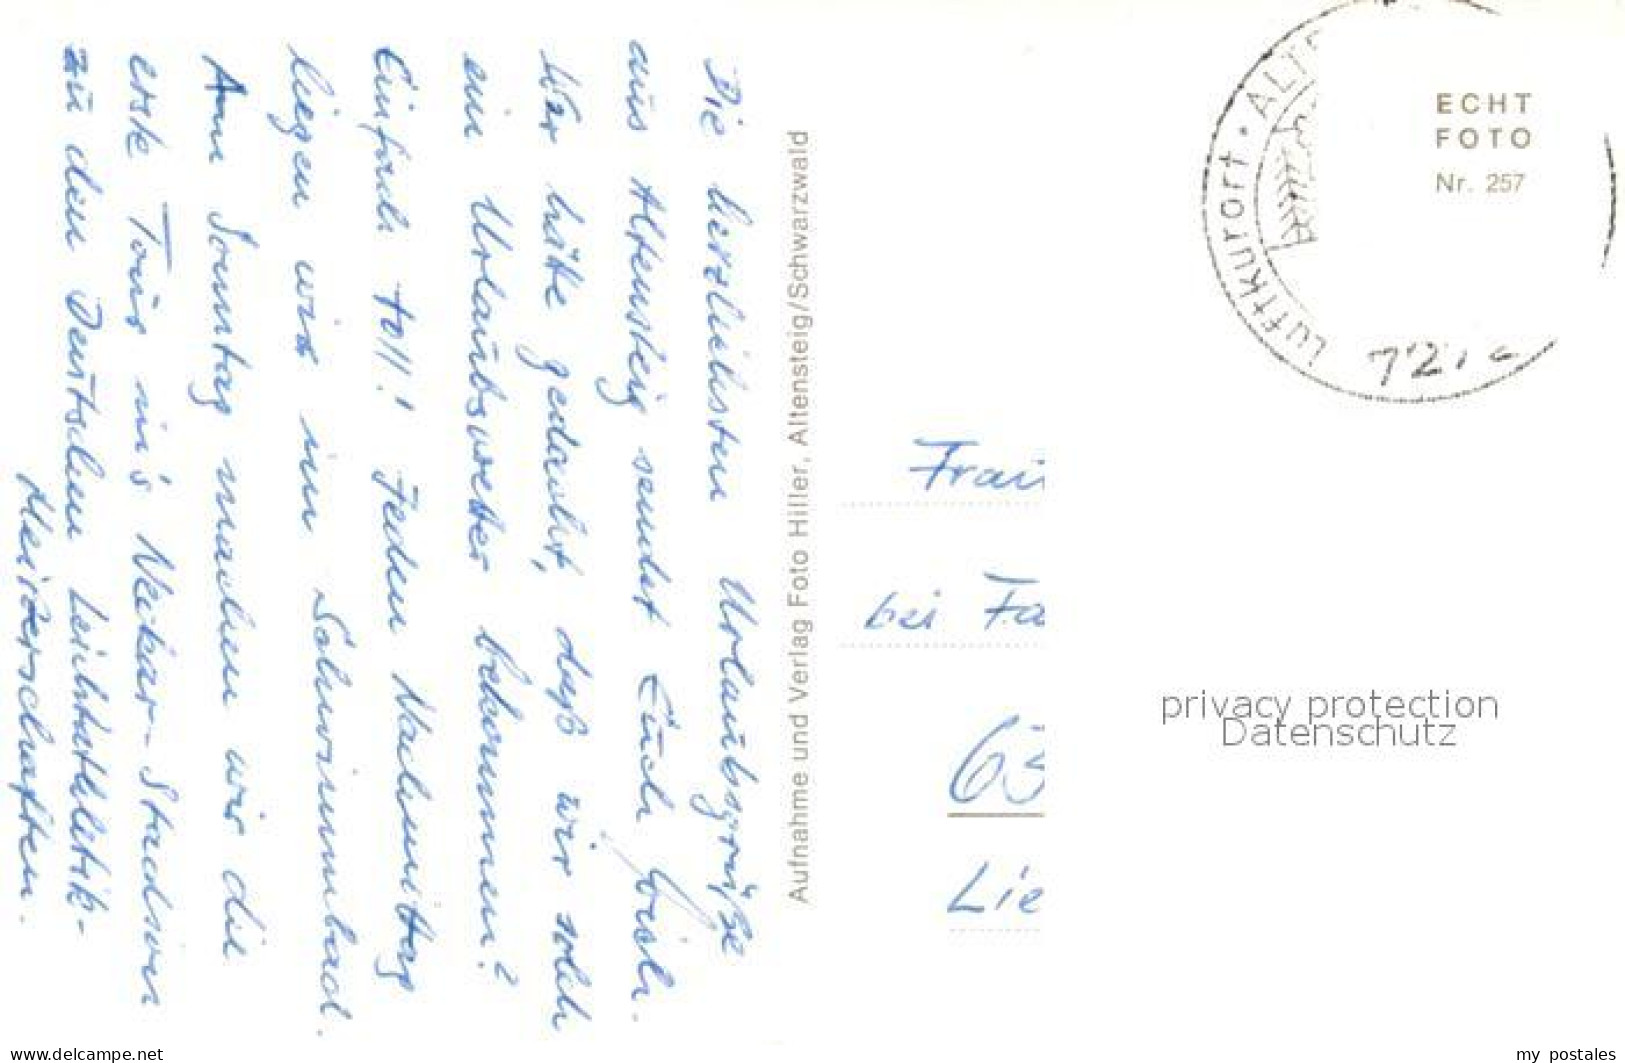 Die herzlichsten Urlaubsgrüße
aus Altensteig sendet Euch
Wer hätte gedacht, daß wir solch
ein Urlaubswetter bekommen?
Einfach toll! Jeden Nachmittag
liegen wir im Schwimmbad.
Am Sonntag machen wir die
erste Tour in's Neckar-Stadion
zu den Deutschen Leichtathletik-
Meisterschaften.
Aufnahme und Verlag Foto Hiller, Altensteig/Schwarzwald
Luftkurort
ECHT
FOTO
Nr. 257
Frau
bei Fa
63
Lie
privacy protection
Datenschutz
delcampe.net
my_postales